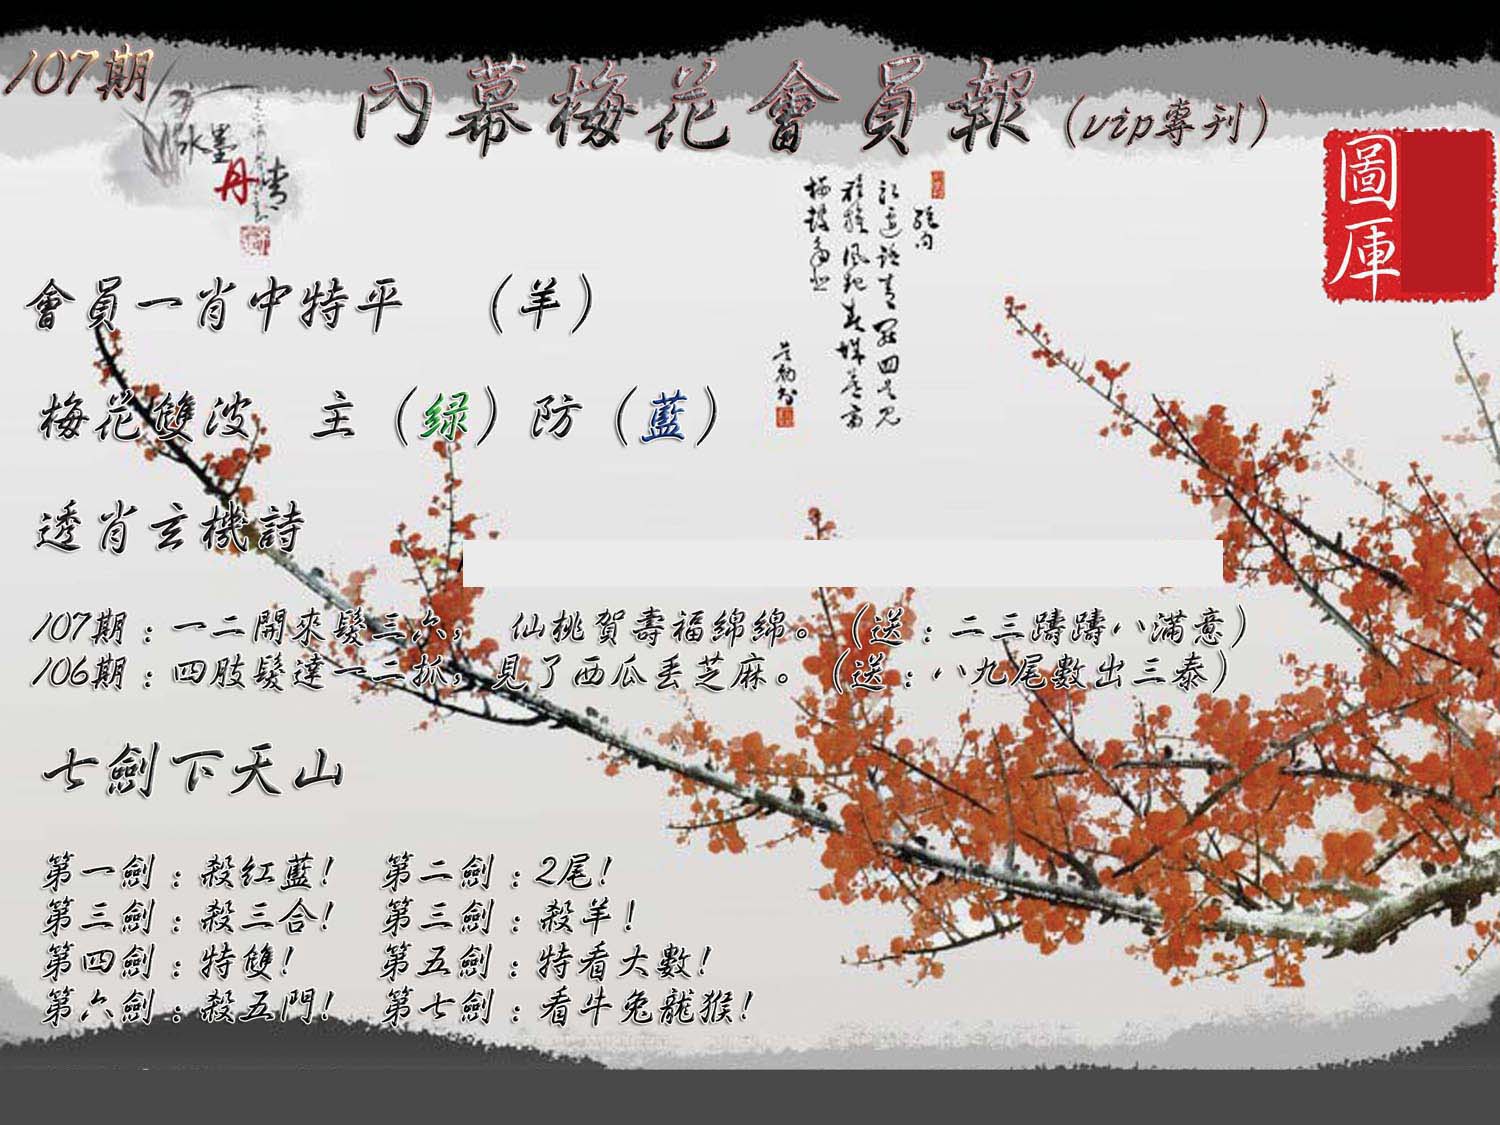 107期
內幕梅花會員報（vip專刊）
水墨
丹青
圖庫
會員一肖中特平　（羊）
梅花雙波　主（绿）防（藍）
透肖玄機詩
107期：一二開來髮三六，　仙桃賀壽福綿綿。（送：二三躊躊八滿意）
106期：四肢髮達一二抓，見了西瓜丢芝麻。（送：八九尾數出三泰）
七劍下天山
第一劍：殺红藍！　第二劍：2尾！
第三劍：殺三合！　第三劍：殺羊！
第四劍：特雙！　第五劍：特看大數！
第六劍：殺五門！　第七劍：看牛兔龍猴！